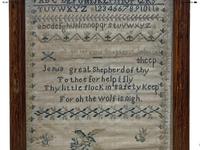 ABCDEFGHIJKLMNOPQRS
TUVWXYZ 12345678910111
abcdefghijklmnopqrstuvwxyz
Jesus great Shepherd of thy Sheep
To thee for help I fly
Thy little flock in safety Keep
For oh the wolf is nigh.